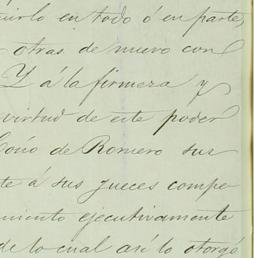 uirlo en todo ó en parte,
otras de nuevo con el
Y á la firmeza y
virtud de este poder
Coño de Romero sus
te á sus jueces compe-
miento ejecutivamente
de lo cual así lo otorgé